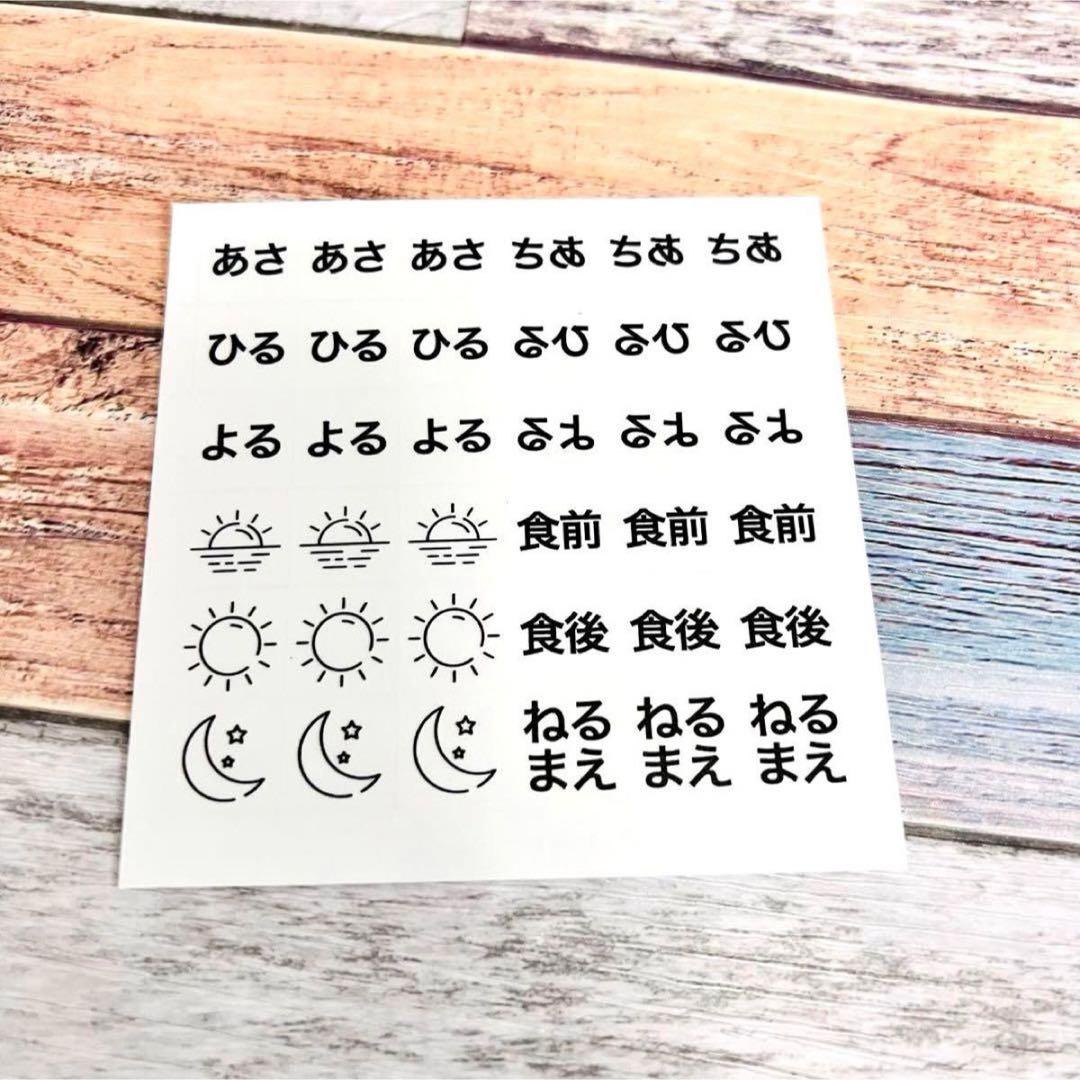 あさ あさ あさ あさ あさ あさ
ひる ひる ひる ひる ひる ひる
よる よる よる よる よる よる
食前 食前 食前
食後 食後 食後
ねる ねる ねる
まえ まえ まえ